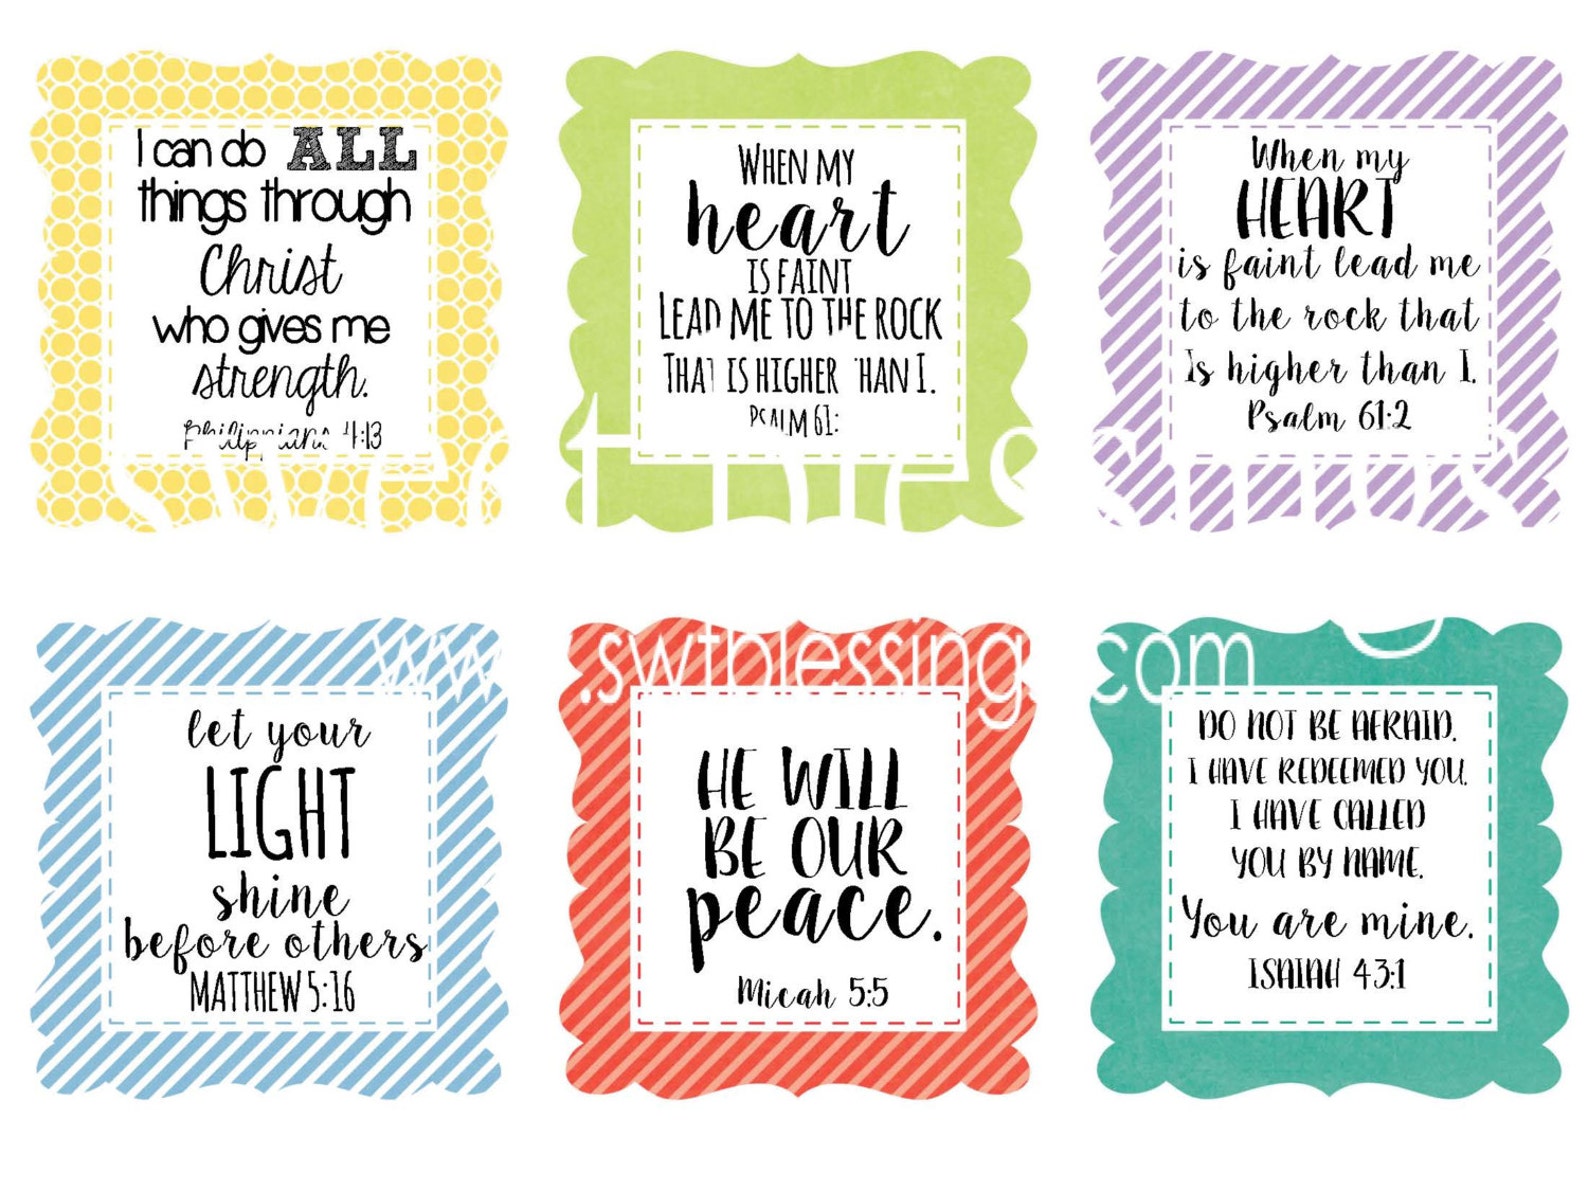 I can do ALL
things through
Christ
who gives me
strength.
Philippians 4:13
WHEN MY
heart
IS FAINT
LEAD ME TO THE ROCK
THAT IS HIGHER THAN I.
PSALM 61:
When my
HEART
is faint lead me
to the rock that
Is higher than I.
Psalm 61:2
sweet blessings
www.swtblessings.com
let your
LIGHT
shine
before others
MATTHEW 5:16
HE WILL
BE OUR
peace.
Micah 5:5
DO NOT BE AFRAID.
I HAVE REDEEMED YOU.
I HAVE CALLED
YOU BY NAME.
You are mine.
ISAIAH 43:1